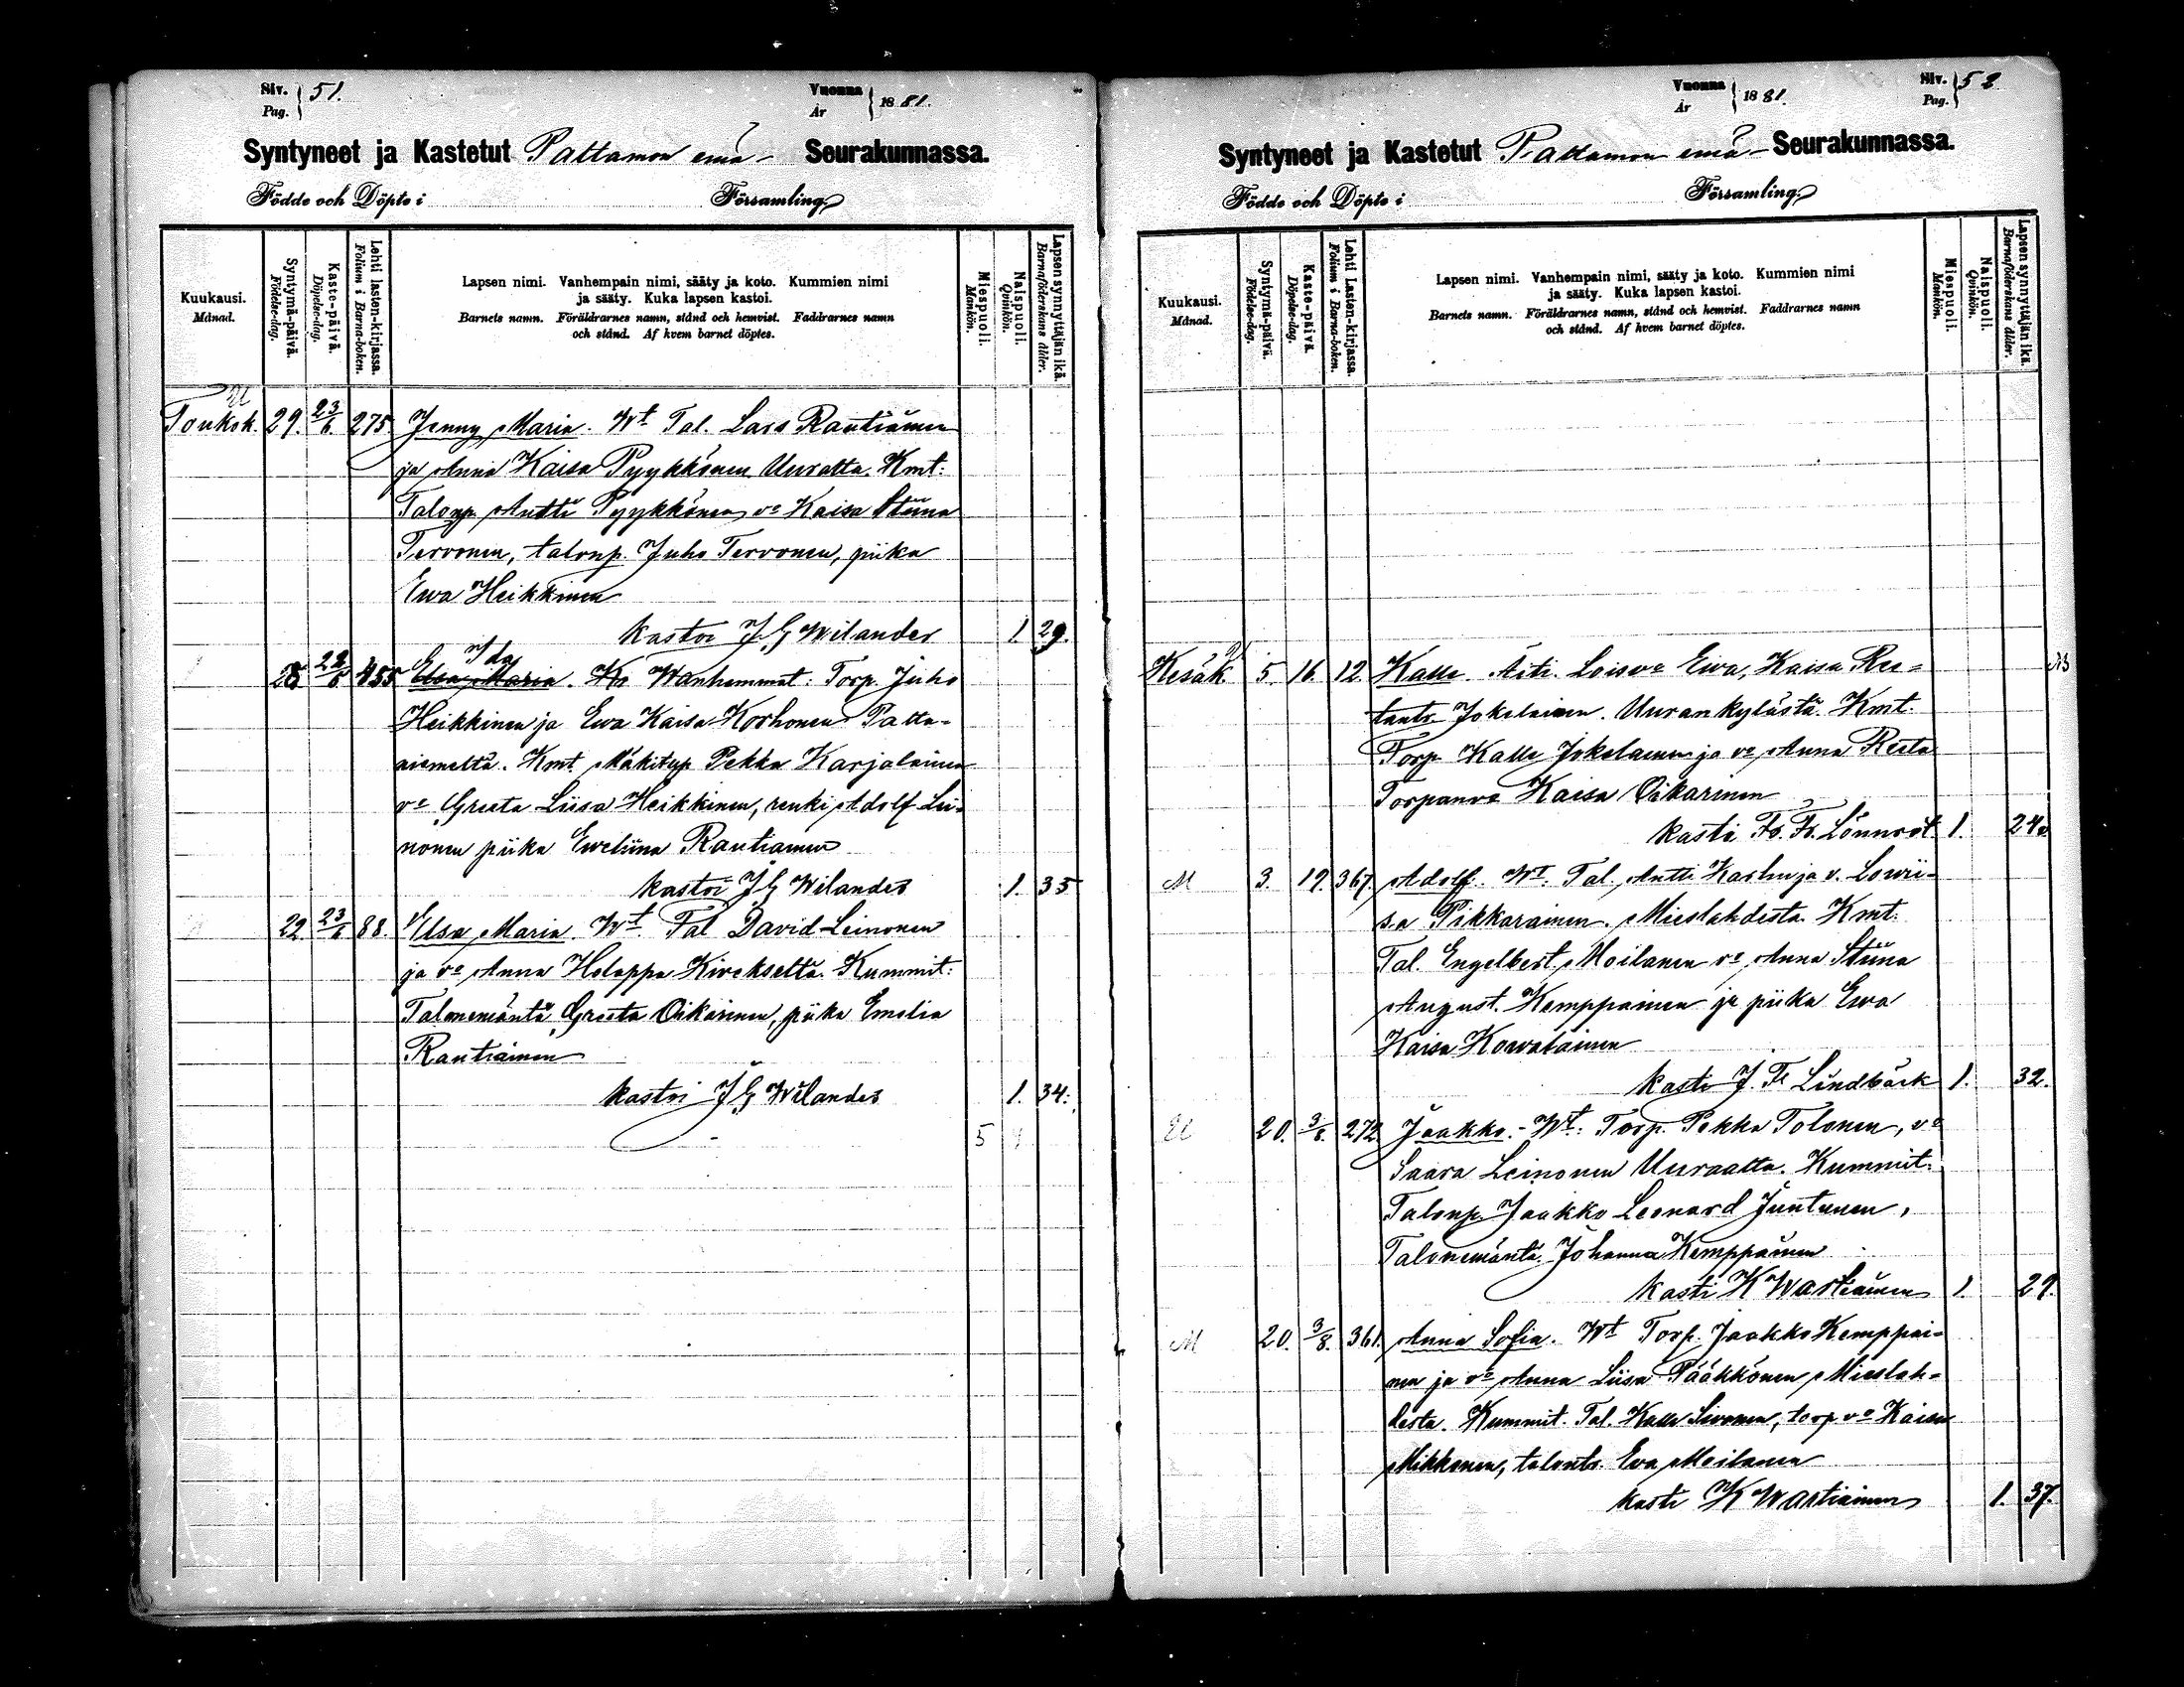 Siv. Pag. 51.
Vuonna År 1881.
Syntyneet ja Kastetut Paltamon emä- Seurakunnassa.
Födde och Döpte i Församling
Kuukausi. Månad.
Syntymä-päivä. Födelse-dag.
Kaste-päivä. Döpelse-dag.
Lehti lasten-kirjassa. Folium i Barna-boken.
Lapsen nimi. Vanhempain nimi, sääty ja koto. Kummien nimi
ja sääty. Kuka lapsen kastoi.
Barnets namn. Föräldrarnes namn, stånd och hemvist. Faddrarnes namn
och stånd. Af hvem barnet döptes.
Miespuoli. Mankön.
Naispuoli. Qvinkön.
Lapsen synnyttäjän ikä. Barnaföderskans ålder.
U
Toukok. 29. 23/6. 275 Jenny Maria. Wt Tal. Lars Rautiainen
ja Anna Kaisa Pyykkönen Uuralta. Kmt:
Talonp. Antti Pyykkönen, vo Kaisa Stiina
Tervonen, talonp. Juho Tervonen, piika
Ewa Heikkinen
kastoi J G Wilander 1 29.
Ida
22/6 455 Elsa Maria. Wanhemmat: Torp. Juho
Heikkinen ja Ewa Kaisa Korhonen Palta-
niemeltä. Kmt. Mäkitup Pekka Karjalainen
vo Greeta Liisa Heikkinen, renki Adolf Lei-
nonen piika Eweliina Rautiainen
kastoi J G Wilander 1. 35
22 23/6 88. Elsa Maria. Wt. Tal David Leinonen
ja vo Anna Holappa Kirekseltä. Kummit:
Talonemäntä Greeta Oikarinen, piika Emelia
Rautiainen
kastoi J G Wilander 1. 34.
5
Siv. Pag. 52
Vuonna År 1881.
Syntyneet ja Kastetut Paltamon emä- Seurakunnassa.
Födde och Döpte i Församling
Kuukausi. Månad.
Syntymä-päivä. Födelse-dag.
Kaste-päivä. Döpelse-dag.
Lehti Lasten-kirjassa. Folium i Barna-boken.
Lapsen nimi. Vanhempain nimi, sääty ja koto. Kummien nimi
ja sääty. Kuka lapsen kastoi.
Barnets namn. Föräldrarnes namn, stånd och hemvist. Faddrarnes namn
och stånd. Af hvem barnet döptes.
Miespuoli. Mankön.
Naispuoli. Qvinkön.
Lapsen synnyttäjän ikä. Barnaföderskans ålder.
Kesäk 5. 16. 12. Kalle. Äiti. Loisva Ewa, Kaisa
Jokelainen. Uurankylästä. Kmt.
Torp. Kalle Jokelainen ja vo Anna Reeta
Kaisa Oikarinen
kasti Fr. Fr. Lönnrot 1. 24
M 3. 19. 367. Adolf. Wt. Tal. Antti Karhu ja v. Lowii-
sa Pikkarainen. Mieslahdesta. Kmt.
Tal. Engelbert Moilanen vo Anna Stiina
August. Kemppainen ja piika Ewa
Kaisa Kowalainen
kasti J. Fr Lindbäck 1. 32.
U 20. 3/8. 272. Jaakko. Wt: Torp. Pekka Tolonen, vo
Saara Leinonen Uuraalta. Kummit:
Talonp. Jaakko Leonard Juntunen,
Talonemäntä. Johanna Kemppainen
kasti K Wartiainen 1. 29.
M 20. 3/8. 361. Anna Sofia. Wt Torp. Jaakko Kemppai-
nen ja vo Anna Liisa Pääkkönen Mieslah-
desta. Kummit. Tal. Kalle Sivonen, torp. vo Kaisa
Mikkonen, talontr. Eva Moilanen
kasti K Wartiainen 1. 37.